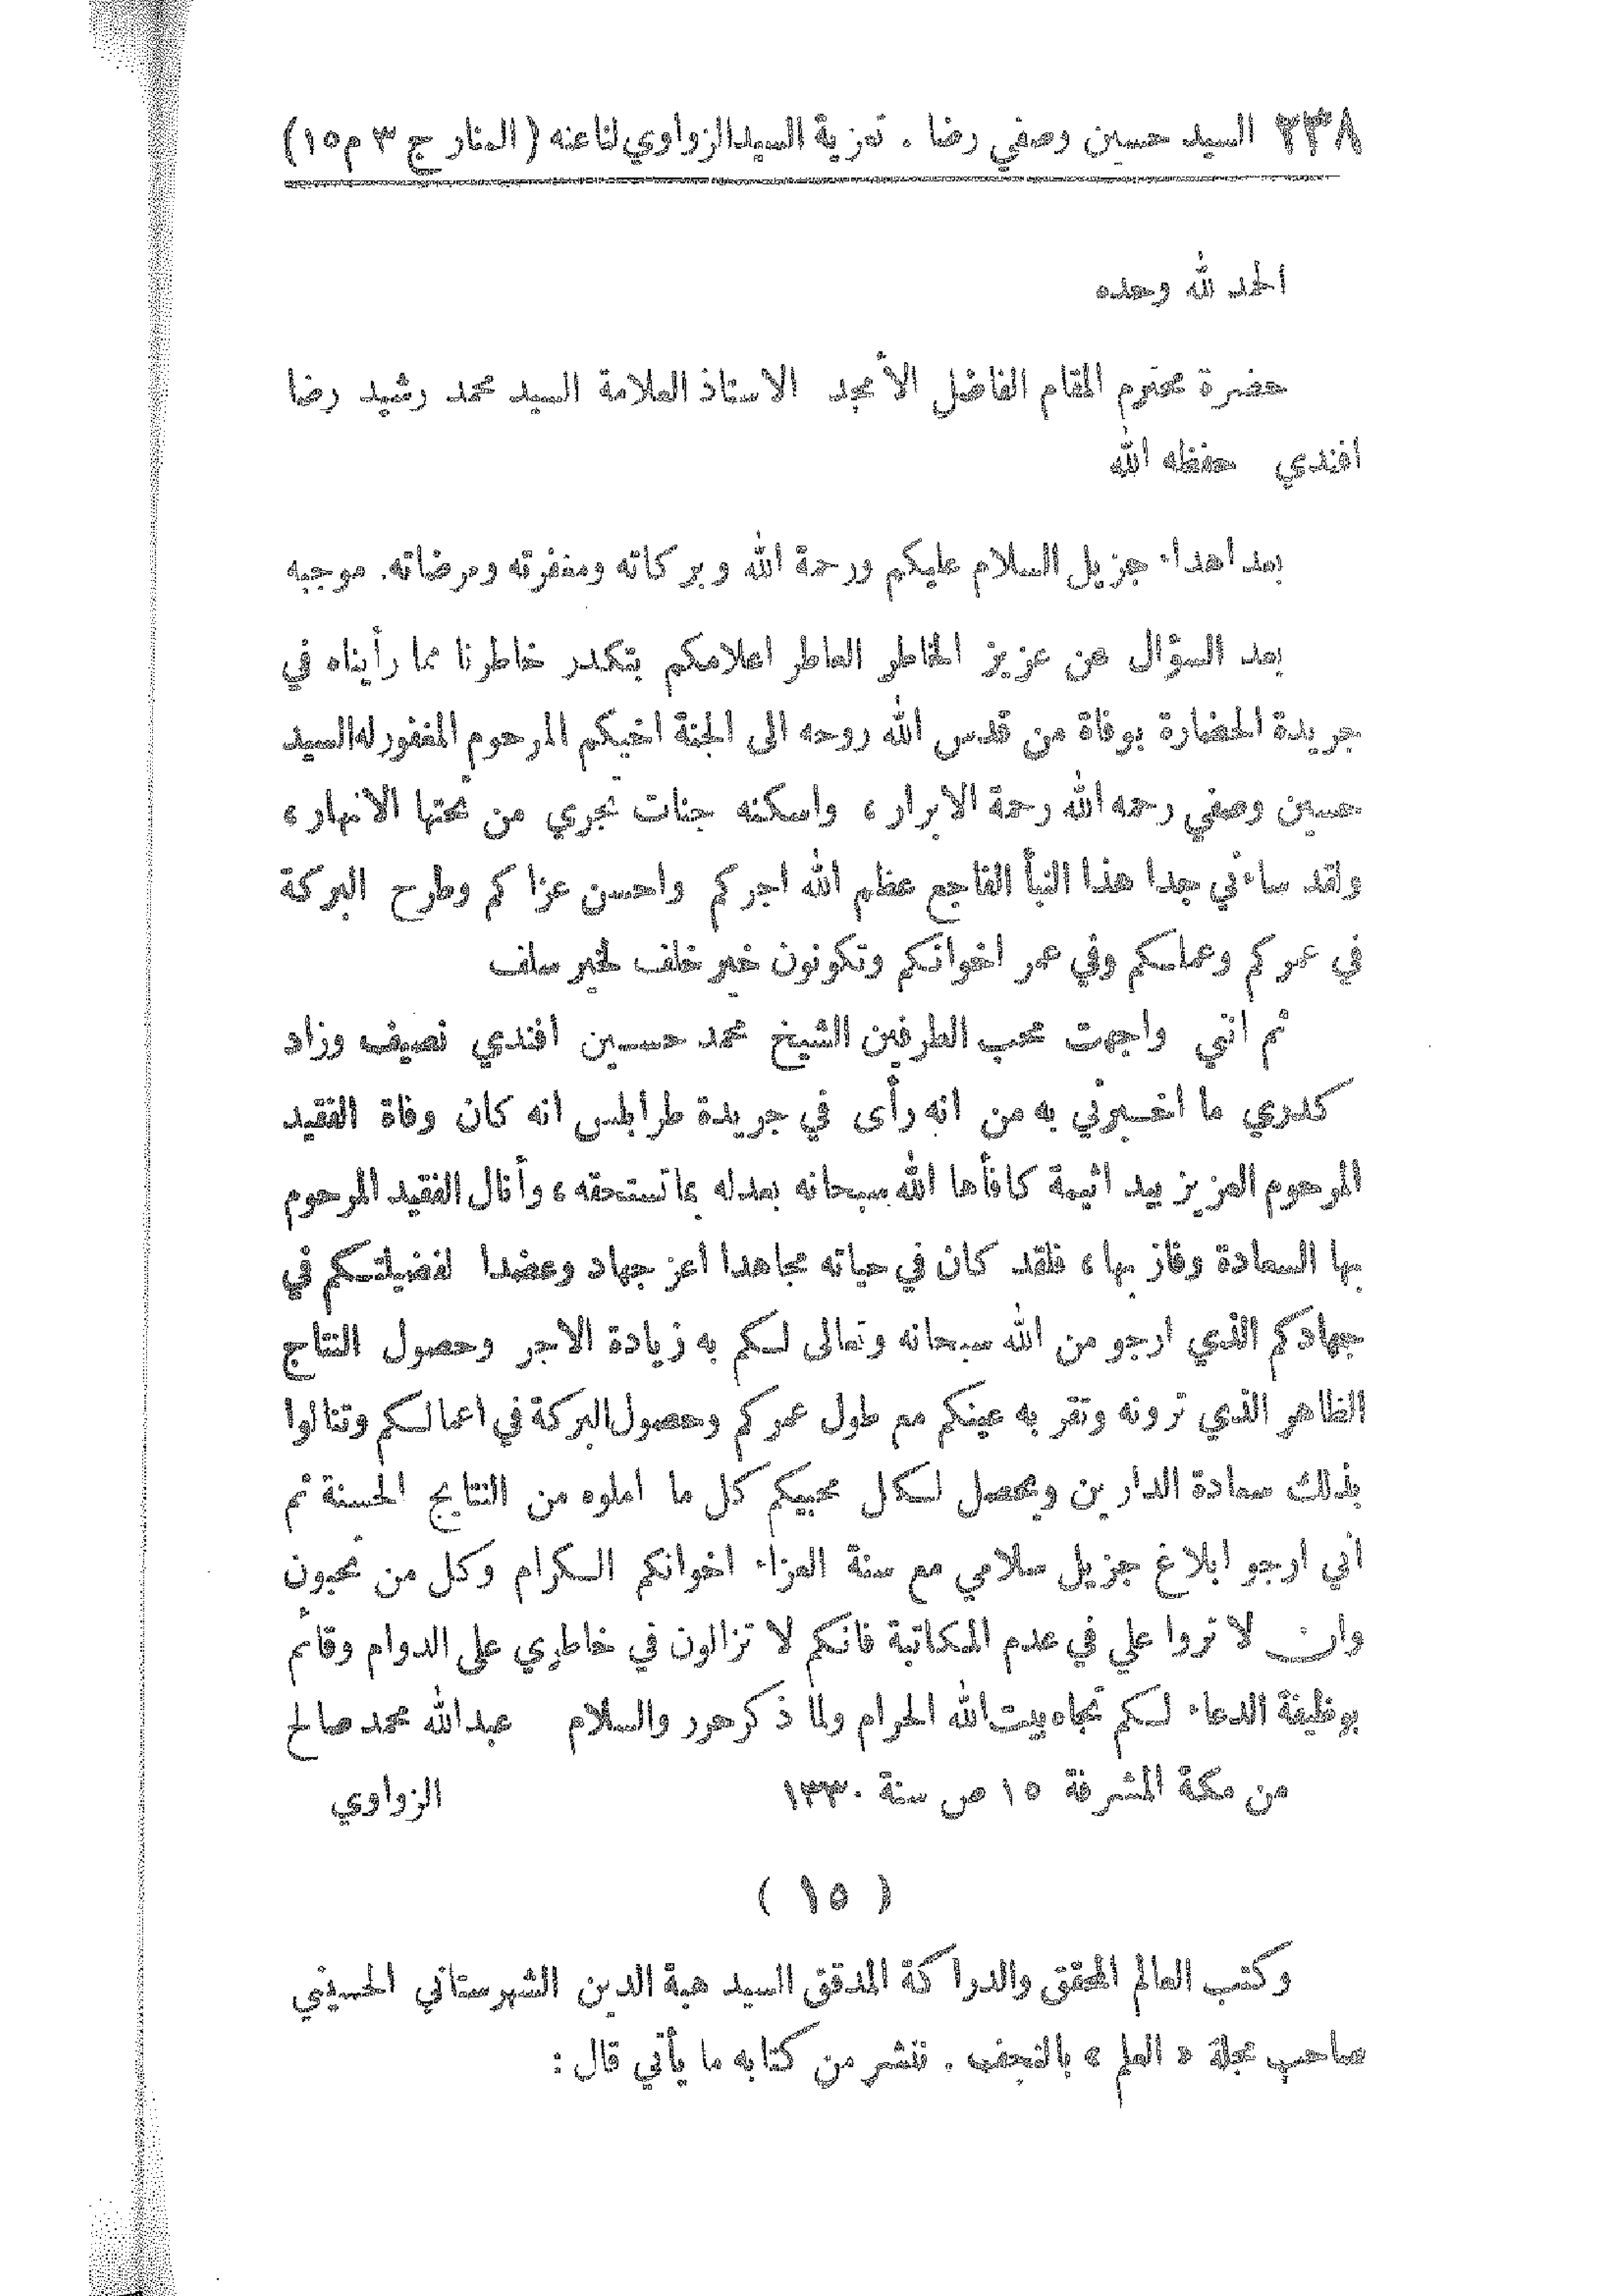 ٢٣٨ السيد حسين وصفي رضا . تعزية السيد الزواوي لنا عنه ( المنار ج ٣ م ١٥)
الحمد لله وحده
حضرة محترم المقام الفاضل الأمجد الاستاذ العلامة السيد محمد رشيد رضا
افندي حفظه الله
بعد اهداء جزيل السلام عليكم ورحمة الله وبركاته ومغفرته ومرضاته. موجبه
بعد السؤال عن عزيز الخاطر العاطر اعلامكم بتكدر خاطرنا مما رأيناه في
جريدة الحضارة بوفاة من قدس الله روحه الى الجنة اخيكم المرحوم المغفور له السيد
حسين وصفي رحمه الله رحمة الابرار ، واسكنه جنات تجري من تحتها الانهار ،
ولقد ساءني جدا هذا النبأ الفاجع عظم الله اجركم واحسن عزاكم وطرح البركة
في عمركم وعملكم وفي عمر اخوانكم وتكونون خير خلف لخير سلف
ثم انني واجهت محب الطرفين الشيخ محمد حسين افندي نصيف وزاد
كدري ما اخبرني به من انه رأى في جريدة طرابلس انه كان وفاة الفقيد
المرحوم العزيز بيد اثيمة كافأها الله سبحانه بعدله بما تستحقه ، وأنال الفقيد المرحوم
بها السعادة وفاز بها ، فلقد كان في حياته مجاهدا اعز جهاد وعضدا لفضيلتكم في
جهادكم الذي ارجو من الله سبحانه وتعالى لكم به زيادة الاجر وحصول النتاج
الظاهر الذي ترونه وتقر به عينكم مع طول عمركم وحصول البركة في اعمالكم وتنالوا
بذلك سعادة الدارين ويحصل لكل محبيكم كل ما املوه من النتايج الحسنة ثم
اني ارجو ابلاغ جزيل سلامي مع سنة العزاء اخوانكم الكرام وكل من تحبون
وان لا تروا علي في عدم المكاتبة فانكم لا تزالون في خاطري على الدوام وقائم
بوظيفة الدعاء لكم تجاه بيت الله الحرام ولما ذكر حرر والسلام عبدالله محمد صالح
من مكة المشرفة ١٥ ص سنة ١٣٣٠ الزواوي
( ١٥ )
وكتب العالم المحقق والدراكة المدقق السيد هبة الدين الشهرستاني الحسيني
صاحب مجلة « العلم » بالنجف . ننشر من كتابه ما يأتي قال :